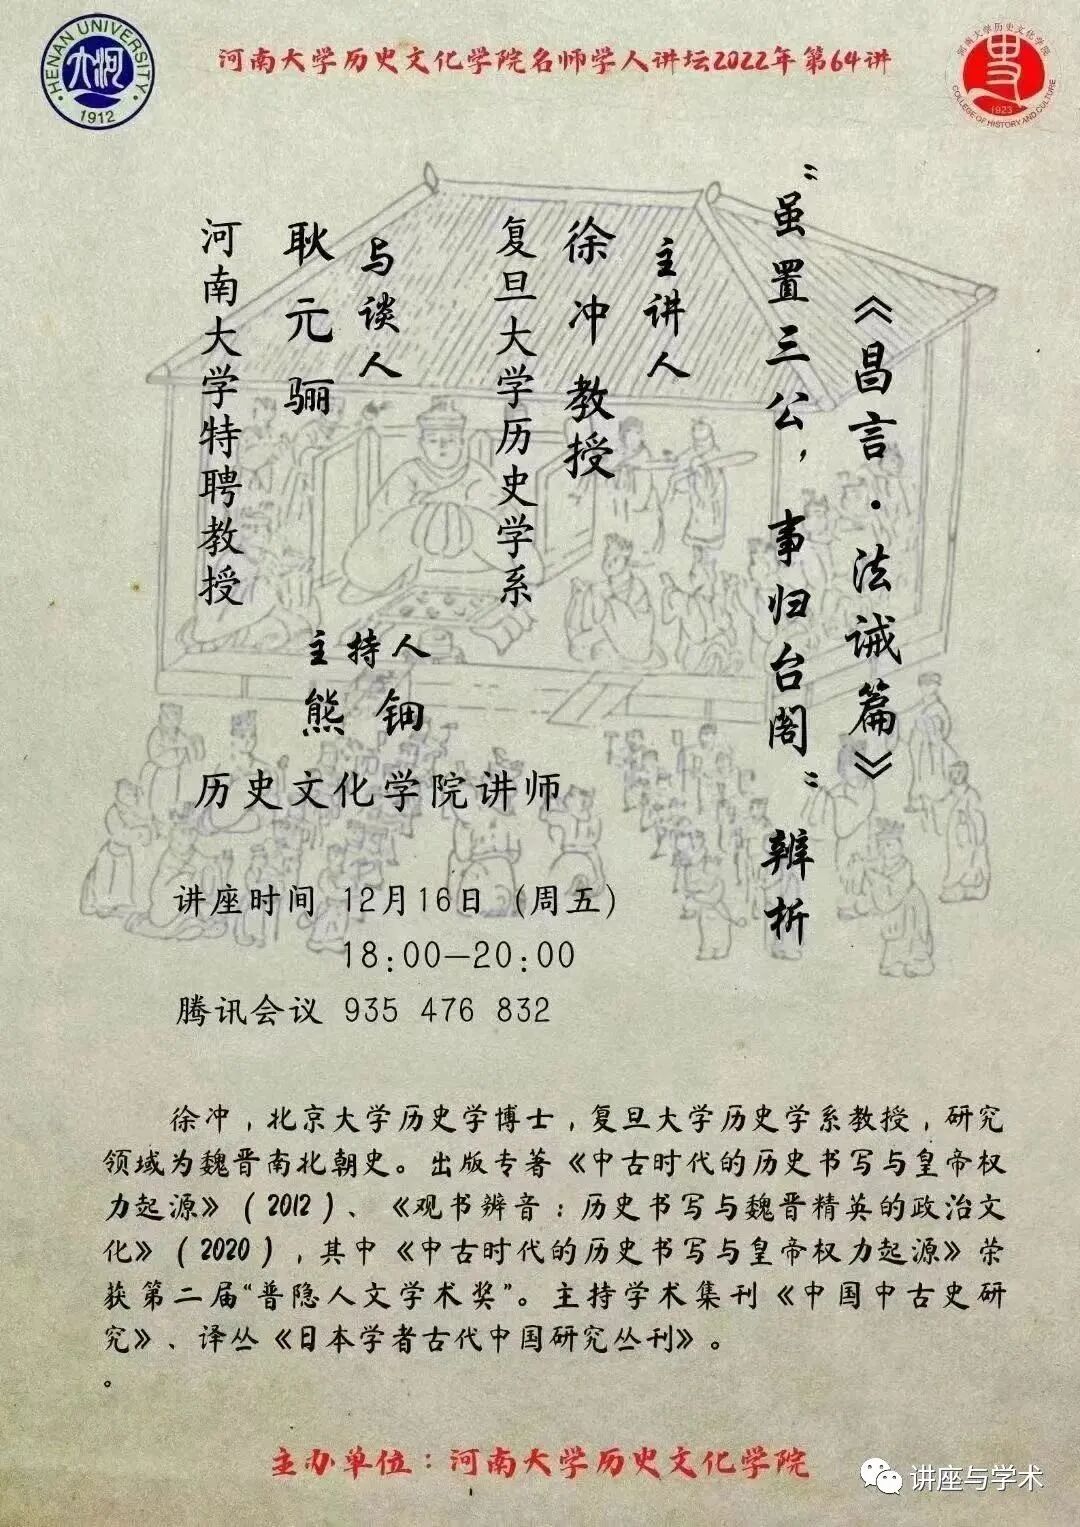 河南大学历史文化学院名师学人讲坛2022年第64讲
HENAN UNIVERSITY
1912
河南大学历史文化学院
1923
COLLEGE OF HISTORY AND CULTURE
《昌言·法诫篇》
“虽置三公，事归台阁”辨析
主讲人
徐冲教授
复旦大学历史学系
与谈人
耿元骊
河南大学特聘教授
主持人
熊钿
历史文化学院讲师
讲座时间 12月16日（周五）
18:00—20:00
腾讯会议 935 476 832
徐冲，北京大学历史学博士，复旦大学历史学系教授，研究
领域为魏晋南北朝史。出版专著《中古时代的历史书写与皇帝权
力起源》（2012）、《观书辨音：历史书写与魏晋精英的政治文
化》（2020），其中《中古时代的历史书写与皇帝权力起源》荣
获第二届“普隐人文学术奖”。主持学术集刊《中国中古史研
究》、译丛《日本学者古代中国研究丛刊》。
。
主办单位：河南大学历史文化学院
讲座与学术